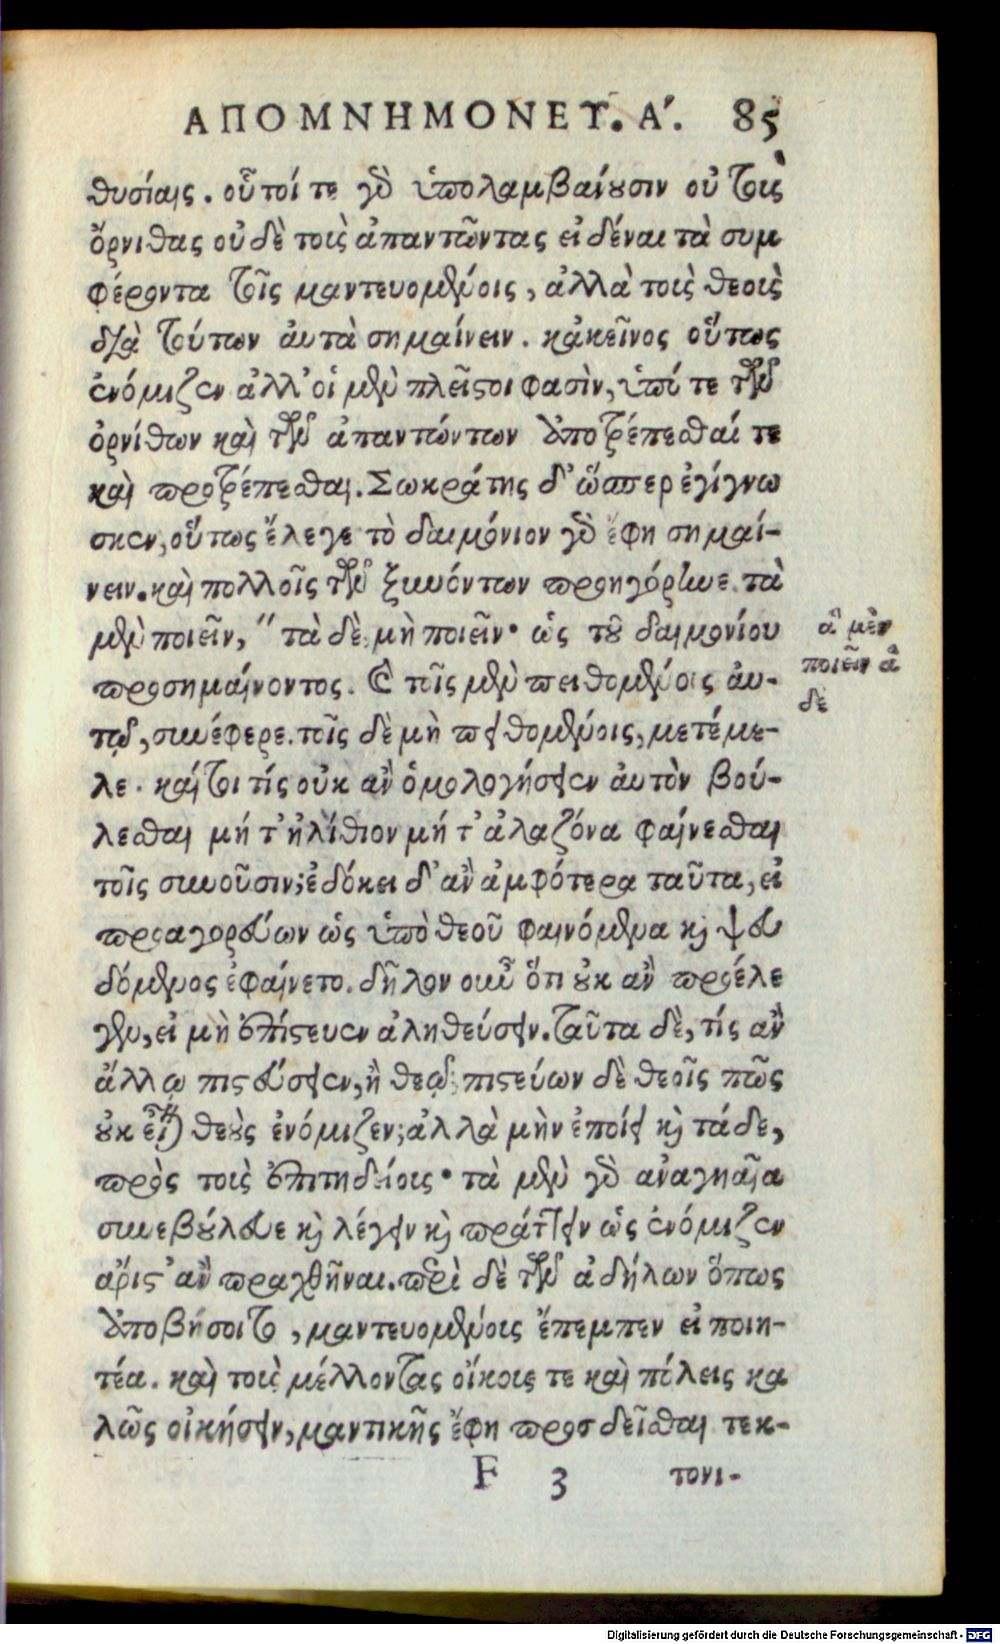 ΑΠΟΜΝΗΜΟΝΕΥ. Α΄. 85
θυσίαις. οὗτοί τε γὸ ὑπολαμβαίνουσιν οὐ τοὺς
ὄρνιθας οὐδὲ τοὺς ἀπαντῶντας εἰδέναι τὰ συμ
φέροντα τοῖς μαντευομένοις, ἀλλὰ τοὺς θεοὺς
διὰ τούτων αὐτὰ σημαίνειν. κἀκεῖνος οὕτως
ἐνόμιζεν ἀλλ' οἱ μὲν πλεῖστοι φασὶν, ὑπό τε τῶν
ὀρνίθων καὶ τῶν ἀπαντώντων ἀποτρέπεσθαί τε
καὶ προτρέπεσθαι. Σωκράτης δ' ὥσπερ ἐγίγνω
σκεν, οὕτως ἔλεγε τὸ δαιμόνιον γὸ ἔφη σημαί-
νειν. καὶ πολλοῖς τῶν ξυνόντων προηγόρευε τὰ
μὲν ποιεῖν, " τὰ δὲ μὴ ποιεῖν· ὡς τοῦ δαιμονίου
προσημαίνοντος. Καὶ τοῖς μὲν πειθομένοις αὐ-
τῷ, συνέφερε. τοῖς δὲ μὴ πειθομένοις, μετέμε-
λε. καίτοι τίς οὐκ ἂν ὁμολογήσειεν αὐτὸν βού-
λεσθαι μήτ' ἠλίθιον μήτ' ἀλαζόνα φαίνεσθαι
τοῖς συνοῦσιν; ἐδόκει δ' ἂν ἀμφότερα ταῦτα, εἰ
προαγορεύων ὡς ὑπὸ θεοῦ φαινόμενα καὶ ψευ
δόμενος ἐφαίνετο. δῆλον οὖν ὅτι οὐκ ἂν προέλε
γεν, εἰ μὴ ἐπίστευεν ἀληθεύσειν. ταῦτα δὲ, τίς ἂν
ἄλλῳ πιστεύσειεν, ἢ θεῷ; πιστεύων δὲ θεοῖς πῶς
οὐκ εἶναι θεοὺς ἐνόμιζεν; ἀλλὰ μὴν ἐποίει καὶ τάδε,
πρὸς τοὺς ἐπιτηδείους· τὰ μὲν γὸ ἀναγκαῖα
συνεβούλευε καὶ λέγειν καὶ πράττειν ὡς ἐνόμιζεν
ἄριστ' ἂν πραχθῆναι. περὶ δὲ τῶν ἀδήλων ὅπως
ἀποβήσοιτο, μαντευομένους ἔπεμπεν εἰ ποιη-
τέα. καὶ τοὺς μέλλοντας οἴκους τε καὶ πόλεις κα
λῶς οἰκήσειν, μαντικῆς ἔφη προσδεῖσθαι τεκ-
F 3 τονι-
ἃ μὲν
ποιεῖν ἃ
δὲ
Digitalisierung gefördert durch die Deutsche Forschungsgemeinschaft - DFG